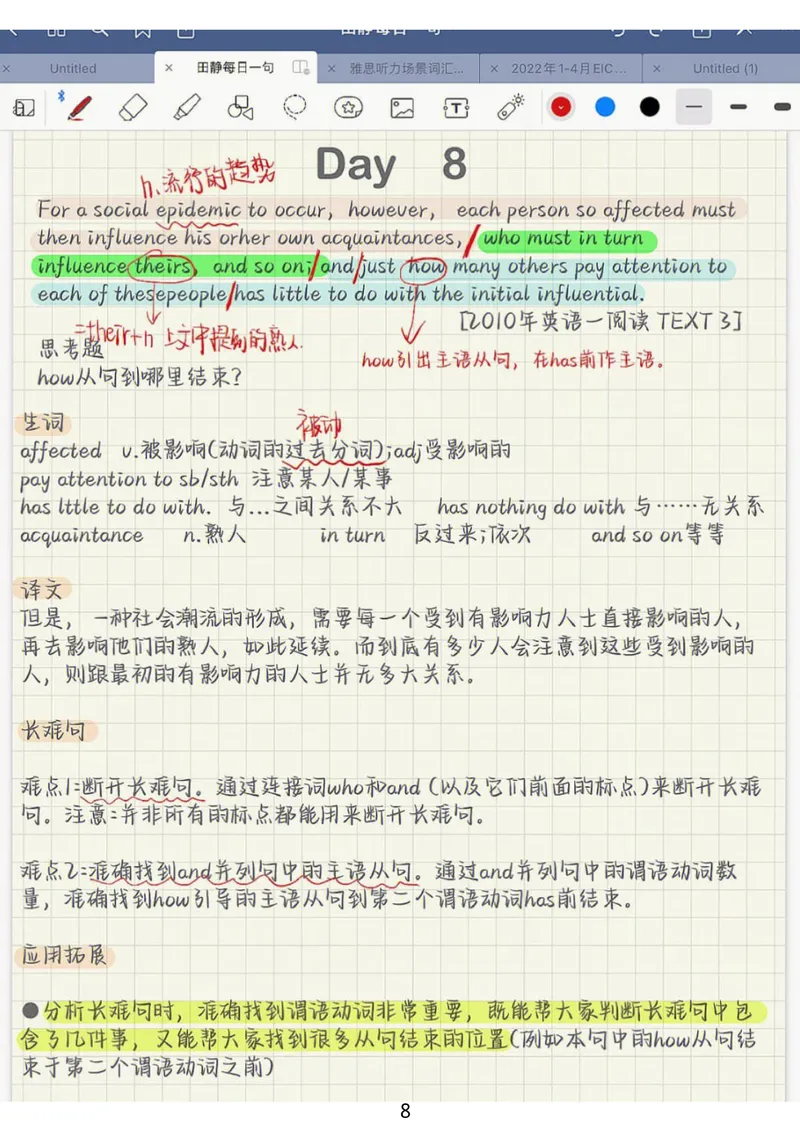 田静每日一句
Untitled
田静每日一句
雅思听力场景词汇...
2022年1-4月EIC...
Untitled (1)
Day 8
n.流行的趋势
For a social epidemic to occur, however, each person so affected must
then influence his orher own acquaintances, who must in turn
influence theirs, and so on; and just how many others pay attention to
each of thesepeople has little to do with the initial influential.
[2010年英语一阅读 TEXT 3]
=their+n 上文中提到的熟人.
how引出主语从句，在has前作主语。
思考题
how从句到哪里结束?
生词
被动
affected v.被影响(动词的过去分词);adj受影响的
pay attention to sb/sth 注意某人/某事
has lttle to do with. 与...之间关系不大 has nothing do with 与……无关系
acquaintance n.熟人 in turn 反过来;依次 and so on等等
译文
但是，一种社会潮流的形成，需要每一个受到有影响力人士直接影响的人，
再去影响他们的熟人，如此延续。而到底有多少人会注意到这些受到影响的
人，则跟最初的有影响力的人士并无多大关系。
长难句
难点1:断开长难句。通过连接词who和and（以及它们前面的标点)来断开长难
句。注意:并非所有的标点都能用来断开长难句。
难点2:准确找到and并列句中的主语从句。通过and并列句中的谓语动词数
量，准确找到how引导的主语从句到第二个谓语动词has前结束。
应用拓展
●分析长难句时，准确找到谓语动词非常重要，既能帮大家判断长难句中包
含了几件事，又能帮大家找到很多从句结束的位置(例如本句中的how从句结
束于第二个谓语动词之前)
8